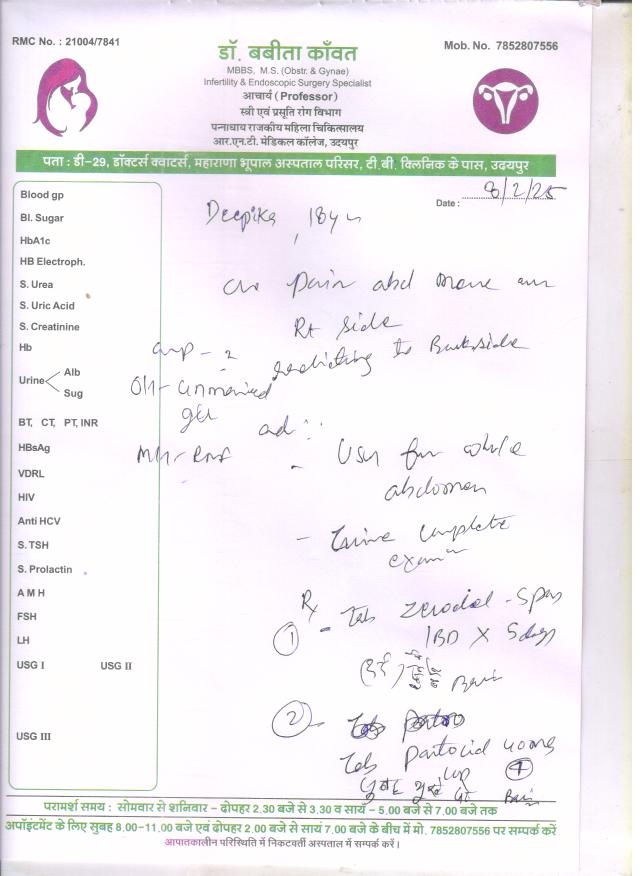 RMC No. : 21004/7841
Mob. No. 7852807556
डॉ. बबीता काँवत
MBBS, M.S. (Obstr. & Gynae)
Infertility & Endoscopic Surgery Specialist
आचार्य (Professor)
स्त्री एवं प्रसूति रोग विभाग
पन्नाधाय राजकीय महिला चिकित्सालय
आर.एन.टी. मेडिकल कॉलेज, उदयपुर
पता : डी-29, डॉक्टर्स क्वाटर्स, महाराणा भूपाल अस्पताल परिसर, टी.बी. क्लिनिक के पास, उदयपुर
Date : 8/2/25
Deepika, 18yr
Blood gp
Bl. Sugar
HbA1c
HB Electroph.
S. Urea
S. Uric Acid
S. Creatinine
Hb
Urine Alb
Sug
BT, CT, PT, INR
HBsAg
VDRL
HIV
Anti HCV
S. TSH
S. Prolactin
A M H
FSH
LH
USG I USG II
USG III
pain abd more
Rt side
radiating to Backside
O/H - unmarried
M/H -
ad :
- USG for whole
abdomen
- Urine complete
exam
Rx
1 - Tab Zerodol - Spas
1BD X 5days
2 - Tab
Tab Pantocid 40mg
परामर्श समय : सोमवार से शनिवार - दोपहर 2.30 बजे से 3.30 व सायं - 5.00 बजे से 7.00 बजे तक
अपॉइंटमेंट के लिए सुबह 8.00-11.00 बजे एवं दोपहर 2.00 बजे से सायं 7.00 बजे के बीच में मो. 7852807556 पर सम्पर्क करें
आपातकालीन परिस्थिति में निकटवर्ती अस्पताल में सम्पर्क करें।